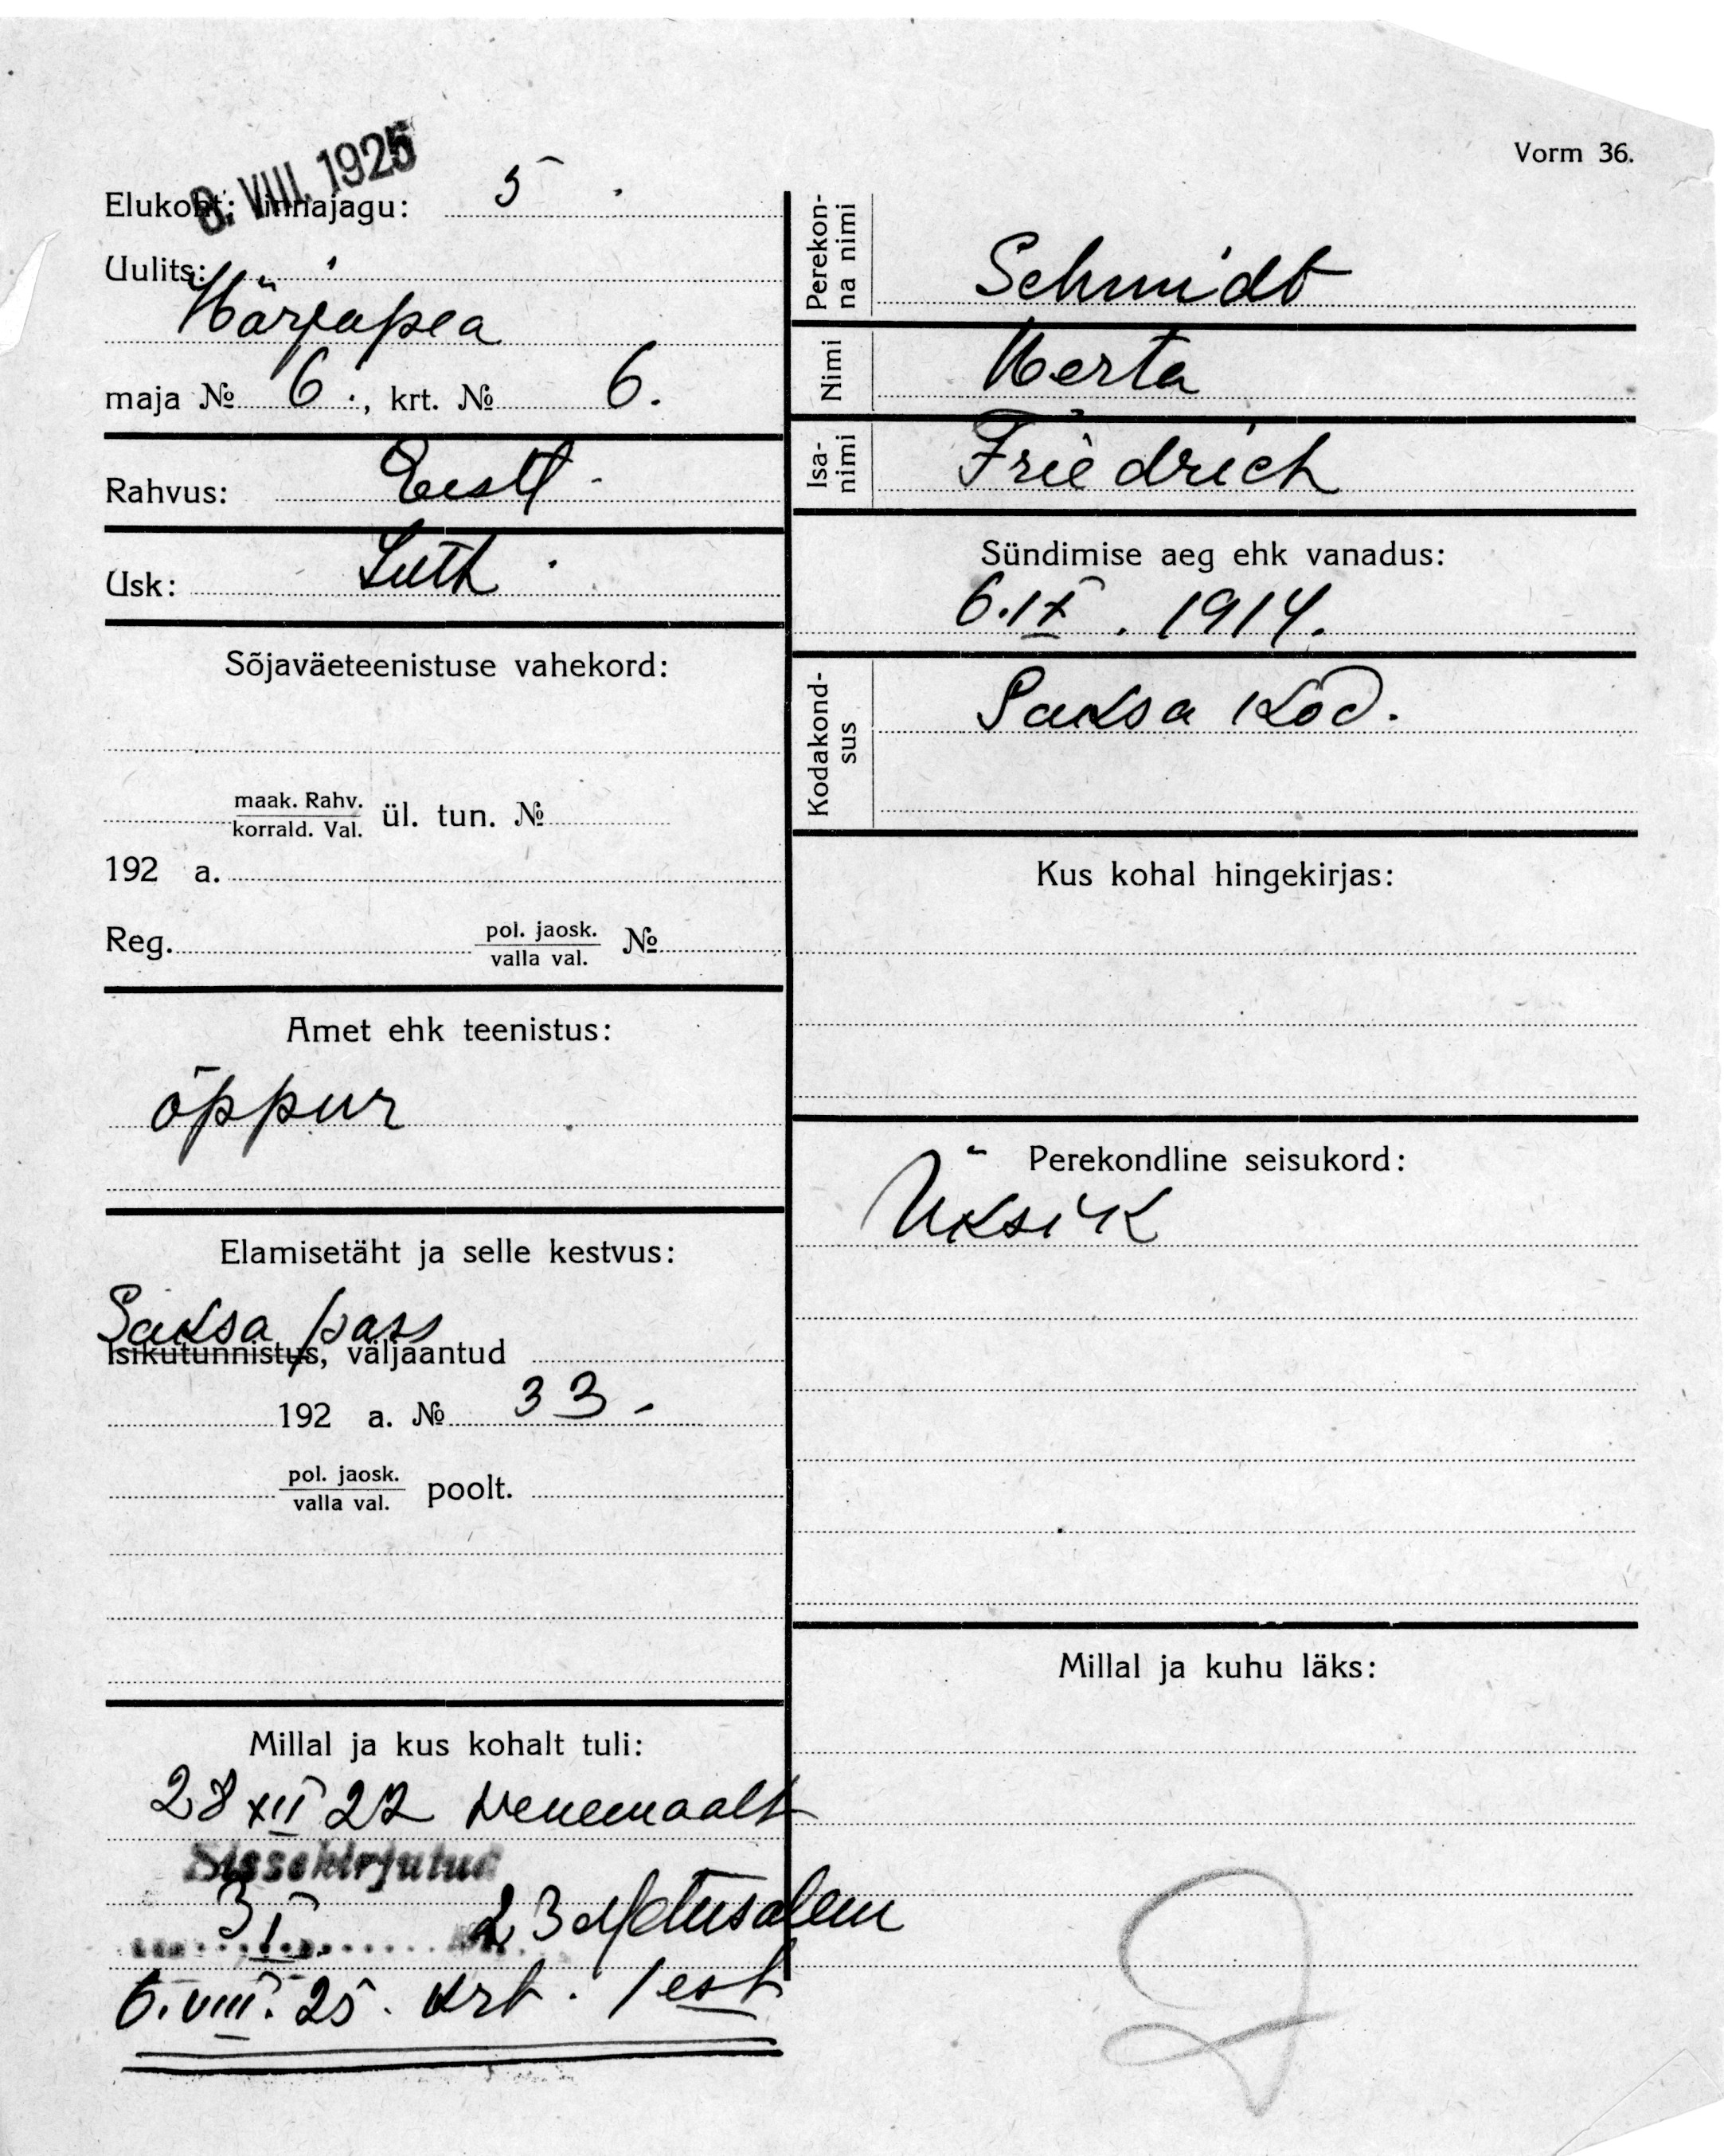 Vorm 36.
8. VIII. 1925
Elukoht: linnajagu: 5
Uulits:
Härjapea
maja № 6., krt. № 6.
Rahvus: Eesti
Usk: Luth.
Sõjaväeteenistuse vahekord:
maak. Rahv.
korrald. Val. ül. tun. №
192 a.
Reg. pol. jaosk.
valla val. №
Amet ehk teenistus:
õppur
Elamisetäht ja selle kestvus:
Saksa pass
Isikutunnistus, väljaantud
192 a. № 33-
pol. jaosk.
valla val. poolt.
Millal ja kus kohalt tuli:
28 XII 22 Venemaalt
Sissekirjutud
3 I 23
6. VIII. 25. krt. 1 est
Perekon-
na nimi
Schmidt
Nimi
Herta
Isa-
nimi
Friedrich
Sündimise aeg ehk vanadus:
6. IX. 1914.
Kodakond-
sus
Saksa kod.
Kus kohal hingekirjas:
Perekondline seisukord:
Üksik
Millal ja kuhu läks: